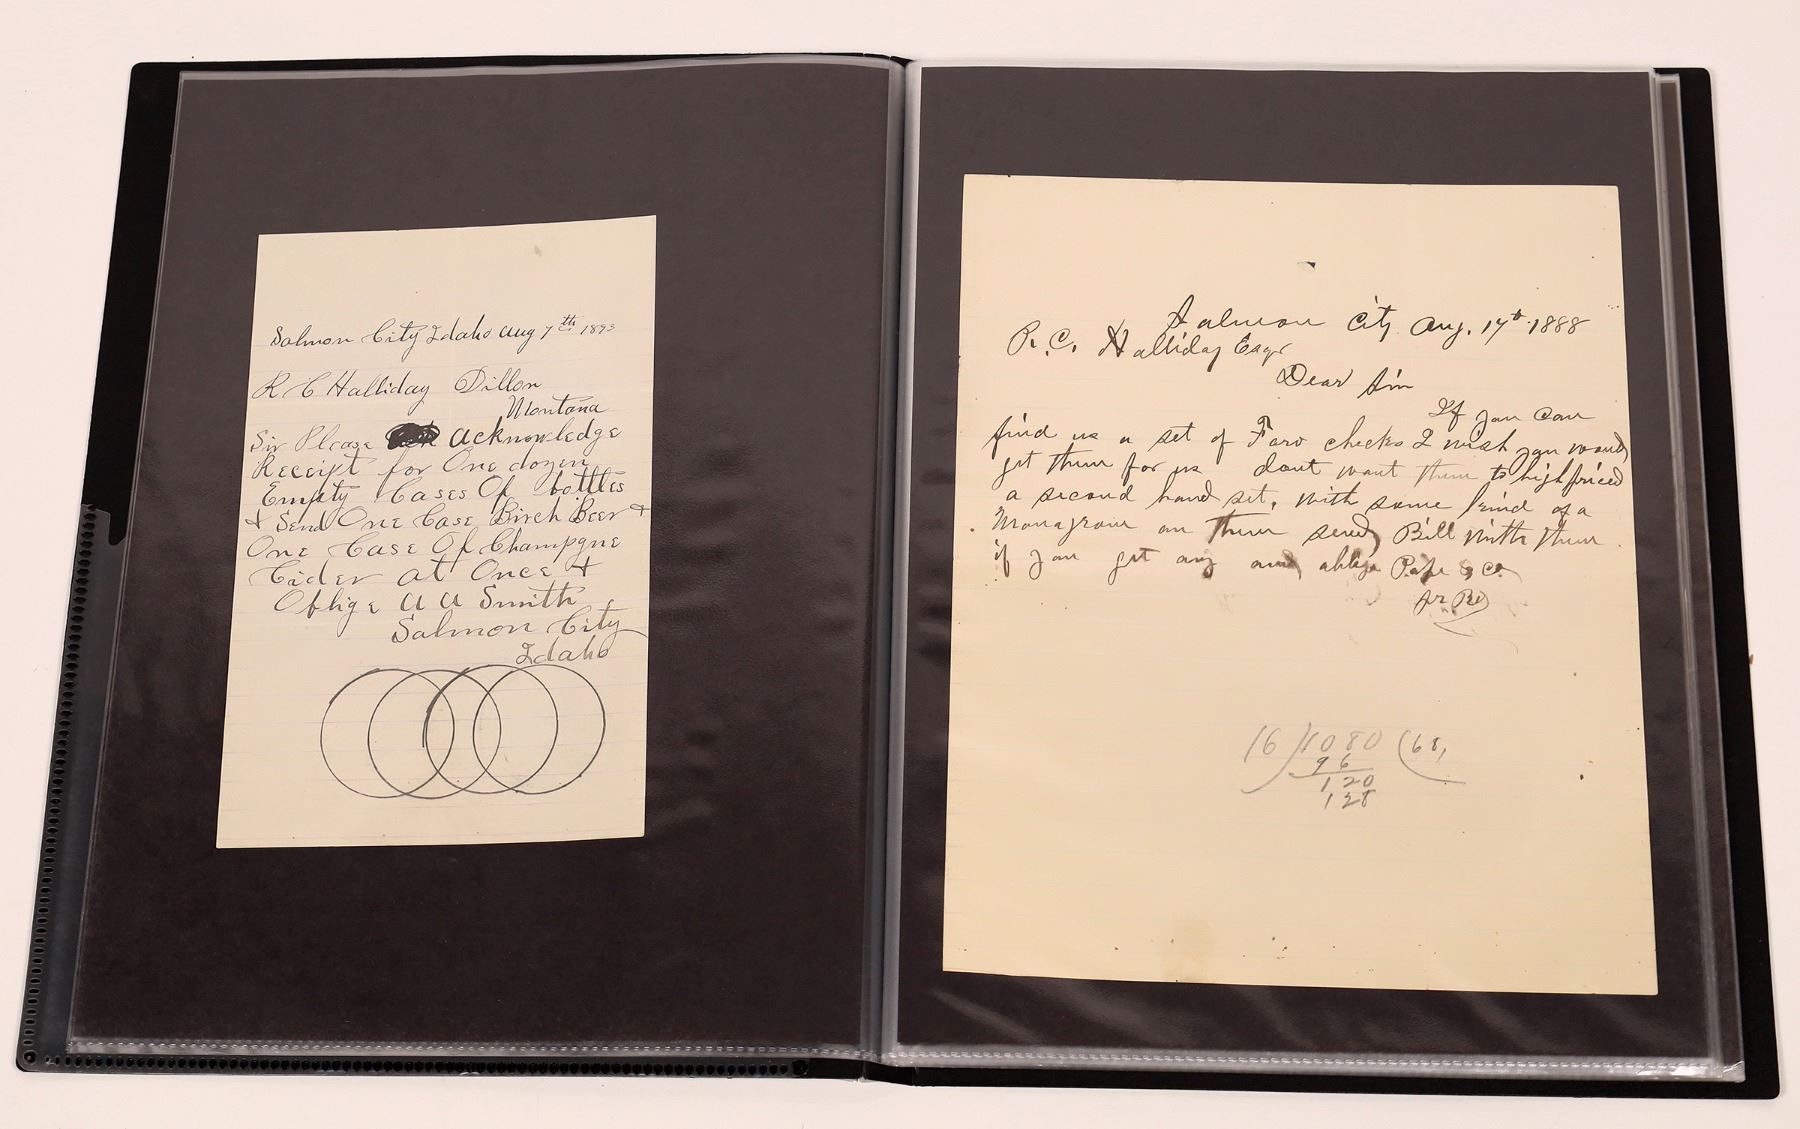 Salmon City Idaho Aug 7th 1893
R C Halliday Dillon
Montana
Sir Please acknowledge
Receipt for One dozen
Empty Cases Of bottles
& Send One Case Birch Beer &
One Case Of Champgne
Cider at Once &
Oblige A A Smith
Salmon City
Idaho
Salmon City Aug. 17th 1888
R. C. Halliday Esqr
Dear Sir
If you can
find us a set of Faro checks I wish you would
get them for us dont want them to high priced
a second hand set, with some kind of a
Monagram on them send Bill with them
if you get any and oblige & Co.
pr
16 ) 1080 ( 68,
96
120
128